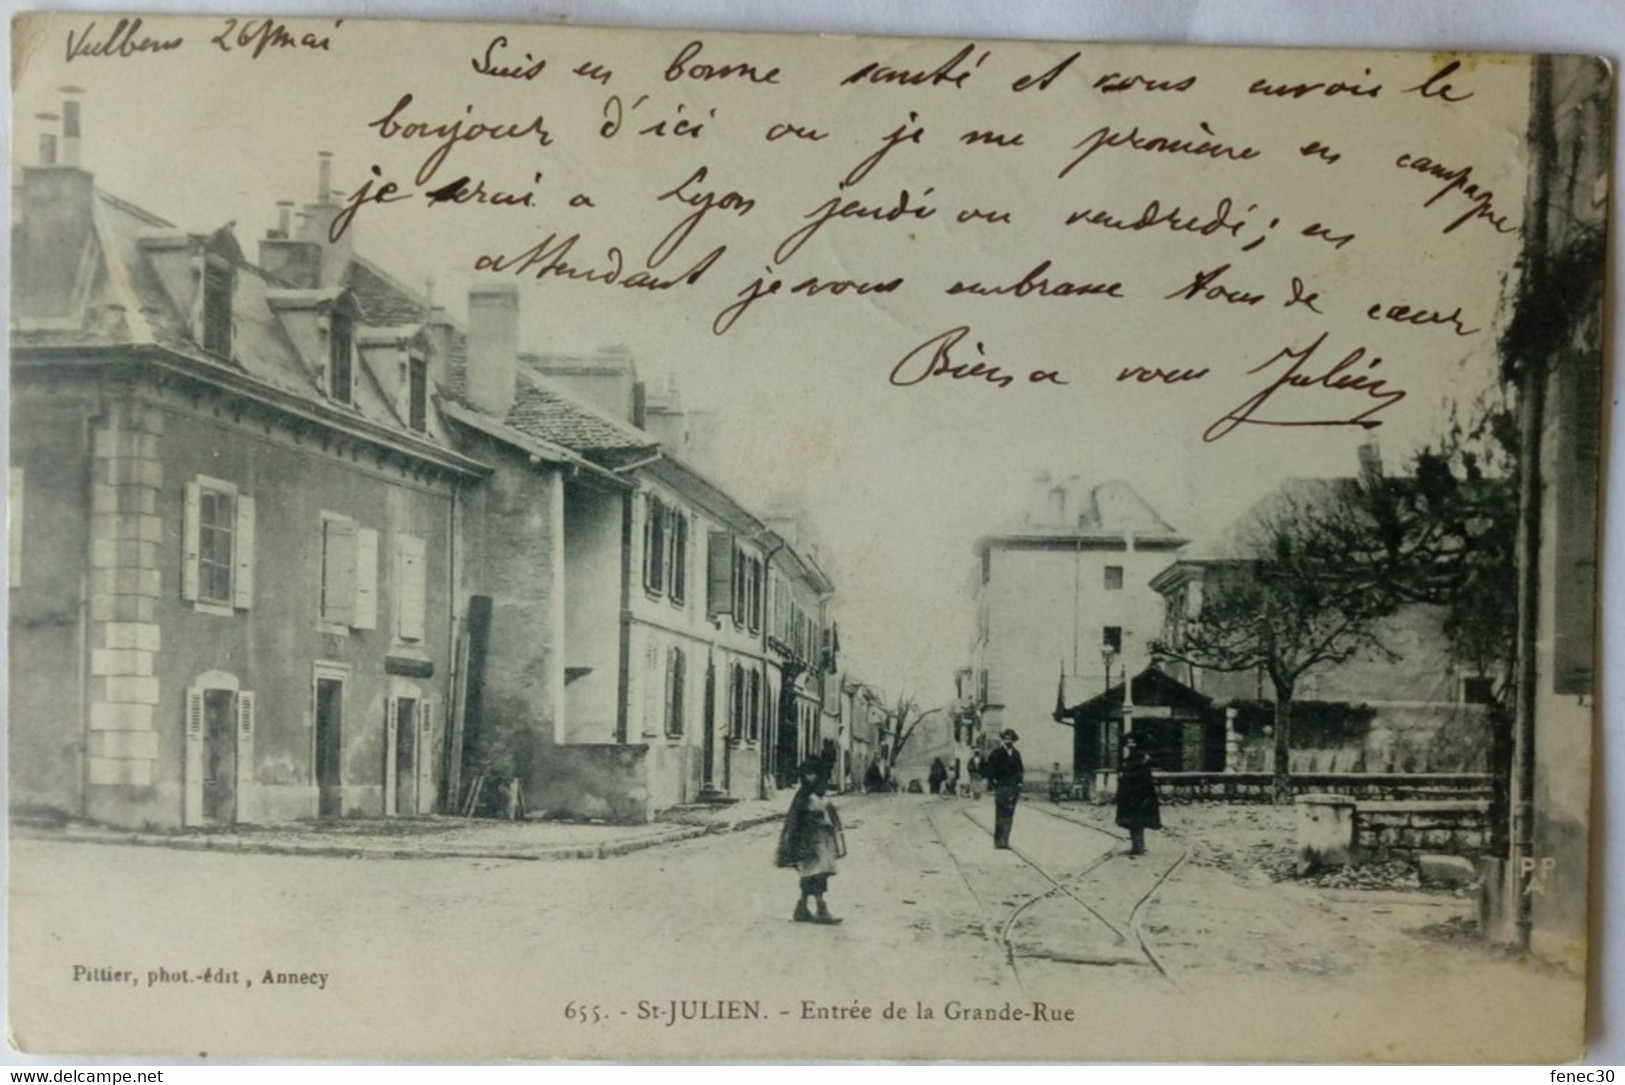 Vulbens 26 mai
Suis en bonne santé et vous envoie le
bonjour d'ici ou je me promène en campagne
je serai a Lyon jeudi ou vendredi; en
attendant je vous embrasse tous de cœur
Biens a vous Julien
PP
A
Pittier, phot.-édit, Annecy
655. - St-JULIEN. - Entrée de la Grande-Rue
www.delcampe.net
fenec30